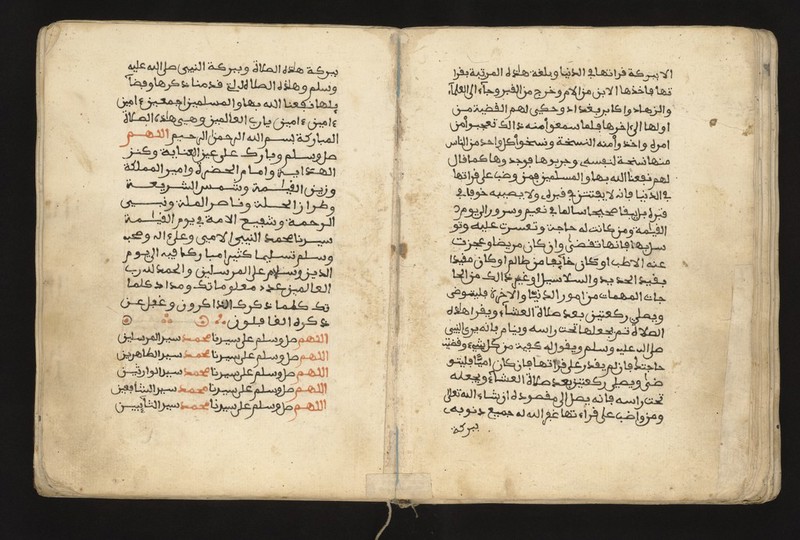 الا ببركة قراتها في الدنيا وبلغه هاذه المرتبة بقرا
تها فاخذها الابن من الام وخرج من القبر وجاء الى العلماء
والزهاد واكابر بغداد وحكى لهم القضية من
اولها الى اخرها فلما سمعوا منه ذالك تعجبوا من
امره واخذوا منه النسخة ونسخوا كل واحد من الناس
منها نسخة لنفسه وجربوها فوجدوها كما قال
لهم نفعنا الله بها والمسلمين فمن وضب على قراتها
في الدنيا فانه لا يفتتن في قبره ولا يصيبه خوف في
قبره بل يبقا صحيحا سالما في نعيم وسرور الى يوم
القيمة ومن كانت له حاجة وتعسرت عليه وتو
سل بها فانها تقضى وان كان مريضا وعجزت
عنه الاطب او كان خايفا من ظالم او كان مقيدا
بقيد الحديد والسلاسل او غير ذالك من الحا
جات المهمات من امور الدنيا والاخرة فليتوضى
ويصلي ركعتين بعد صلاة العشاء ويقرا هاذه
الصلاة ثم يجعلها تحت راسه وينام فانه يرى النبي
صلى الله عليه وسلم ويقول له كفيت من كل شيء وقضيت
حاجتك فان لم يقدر على قراتها فان كان اميا فليتو
ضى ويصلي ركعتين بعد صلاة العشاء ويجعله
تحت راسه فانه يصل الى مقصوده ان شاء الله تعالى
ومن واضب على قراءتها غفر الله له جميع ذنوبه
ببركة
ببركة هاذه الصلاة وببركة النبي صلى الله عليه
وسلم وهاذه الصلاة قدمنا ذكرها وفضا
يلها نفعنا الله بها والمسلمين اجمعين ءامين
ءامين ءامين يارب العالمين وهي هاذه الصلاة
المباركة بسم الله الرحمن الرحيم اللهم
صل وسلم وبارك على عين العناية وكنز
الهداية وامام الحضرة وامير المملكة
وزين القيامة وشمس الشريعة
وطراز الحلة وناصر الملة ونبي
الرحمة وشفيع الامة في يوم القيامة
سيدنا محمد النبي الامي وعلى اله وصحبه
وسلم تسليما كثيرا مباركا فيه الى يوم
الدين وسلام على المرسلين والحمد لله رب
العالمين عدد معلوماتك ومداد كلما
تك كلما ذكرك الذاكرون وغفل عن
ذكره الغافلون
اللهم صل وسلم على سيدنا محمد سيد المرسلين
اللهم صل وسلم على سيدنا محمد سيد الطاهرين
اللهم صل وسلم على سيدنا محمد سيد الوارثين
اللهم صل وسلم على سيدنا محمد سيد السابقين
اللهم صل وسلم على سيدنا محمد سيد التايبين